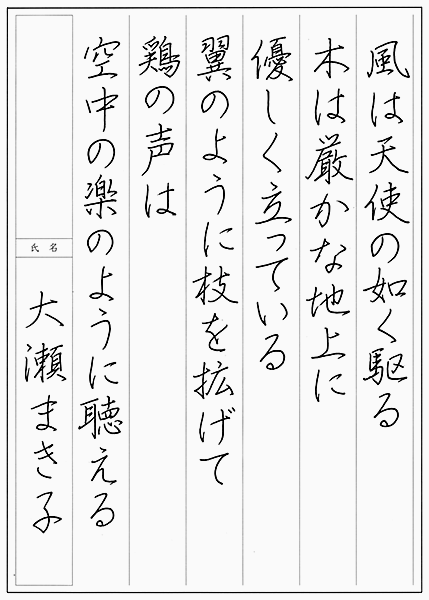 風は天使の如く駆る
木は厳かな地上に
優しく立っている
翼のように枝を拡げて
鶏の声は
空中の楽のように聴える
氏名
大瀬まき子